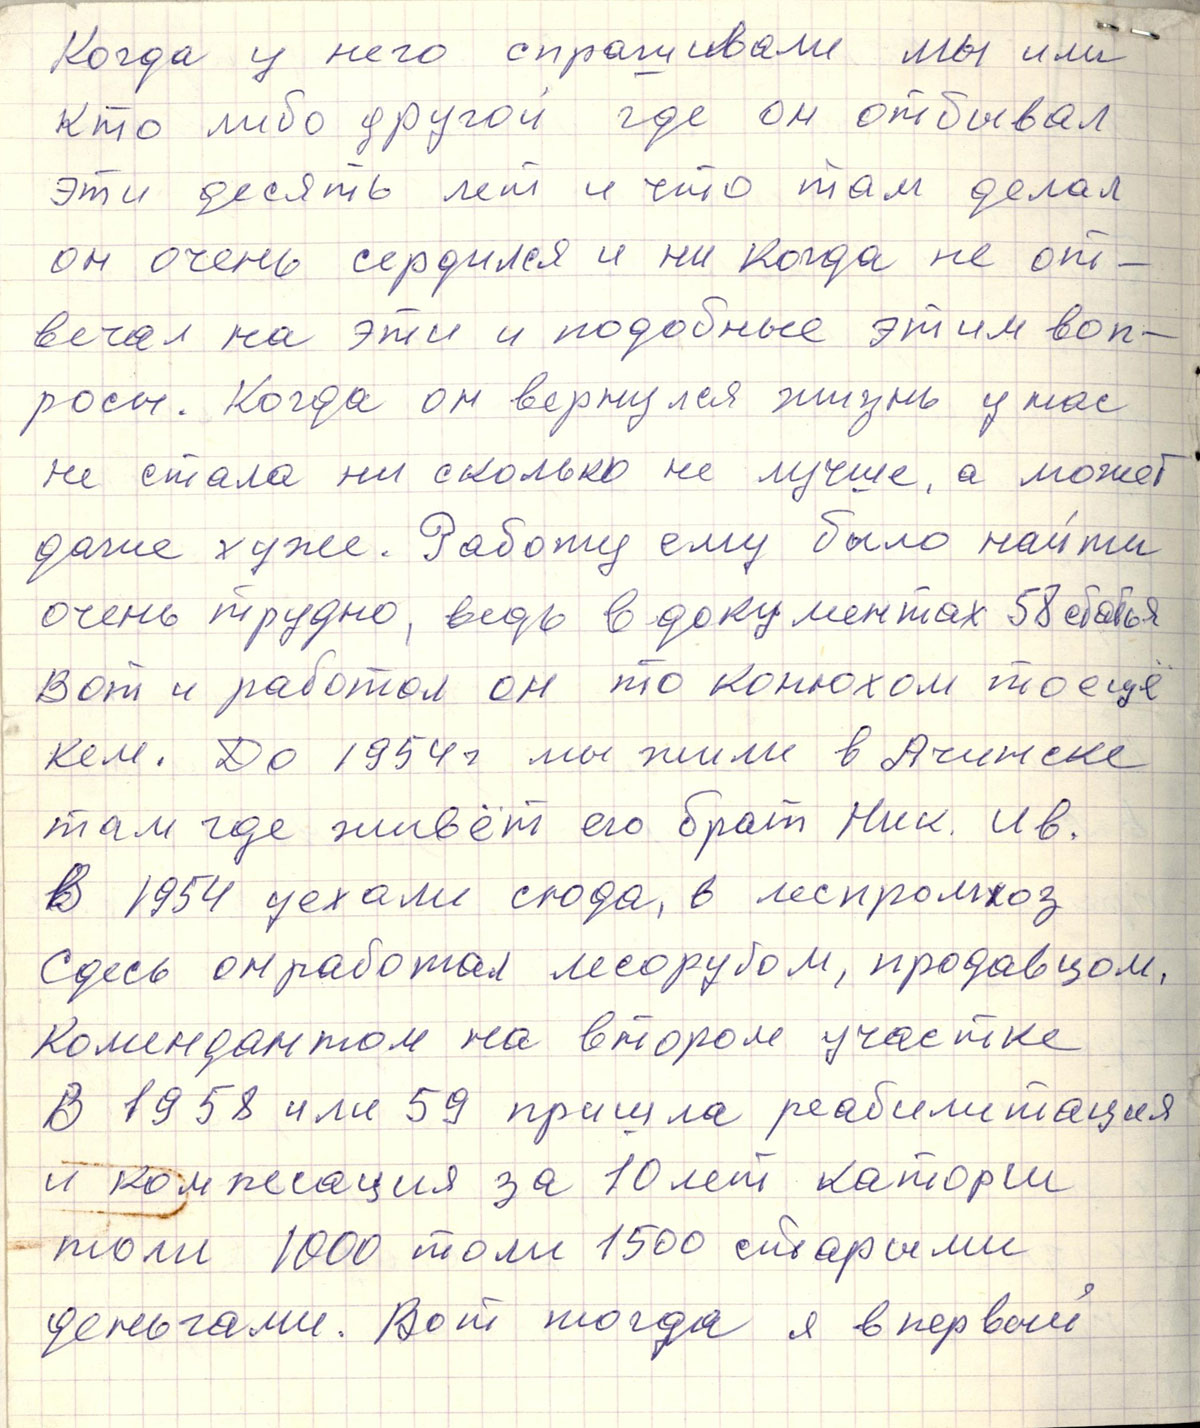 Когда у него спрашивали мы или
кто либо другой где он отбывал
эти десять лет и что там делал
он очень сердился и ни когда не от-
вечал на эти и подобные этим воп-
росы. Когда он вернулся жизнь у нас
не стала ни сколько не лучше, а может
даже хуже. Работу ему было найти
очень трудно, ведь в документах 58 статья
Вот и работал он то конюхом то ещё
кем. До 1954 г мы жили в Ачинске
там где живёт его брат Ник. Ив.
В 1954 уехали сюда, в леспромхоз
Сдесь он работал лесорубом, продавцом,
комендантом на втором участке
В 1958 или 59 пришла реабилитация
и компесация за 10 лет каторги
толи 1000 толи 1500 старыми
деньгами. Вот тогда я впервый